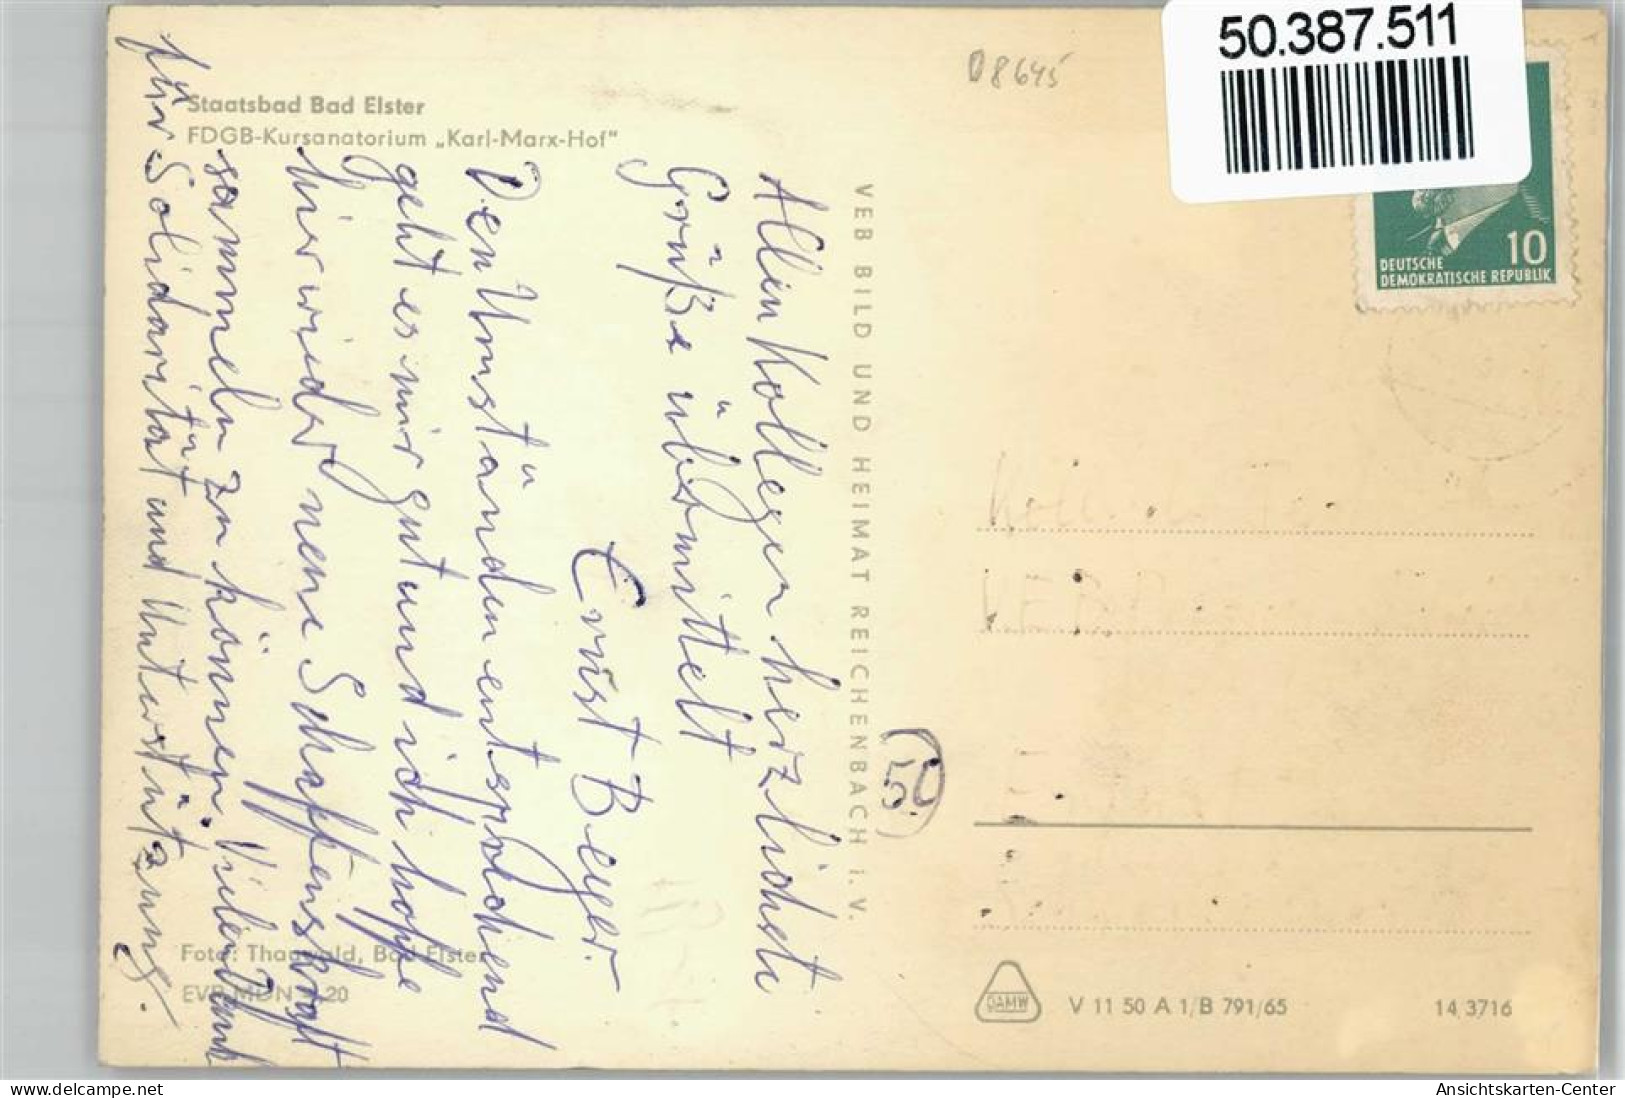 50.387.511
D 8645
Staatsbad Bad Elster
FDGB-Kursanatorium „Karl-Marx-Hof"
DEUTSCHE
DEMOKRATISCHE REPUBLIK
10
Allen Kollegen herzlichste
Grüße übermittelt
Ernst Beyer.
Den Umständen entsprechend
geht es mir gut und ich hoffe
hier wieder neue Schaffenskraft
sammeln zu können. Vielen Dank
für Solidarität und Unterstützung.
VEB BILD UND HEIMAT REICHENBACH i. V.
50
Foto: Thaowald, Bad Elster
EVP MDN 0,20
DAMW
V 11 50 A 1/B 791/65
14 3716
Ansichtskarten-Center